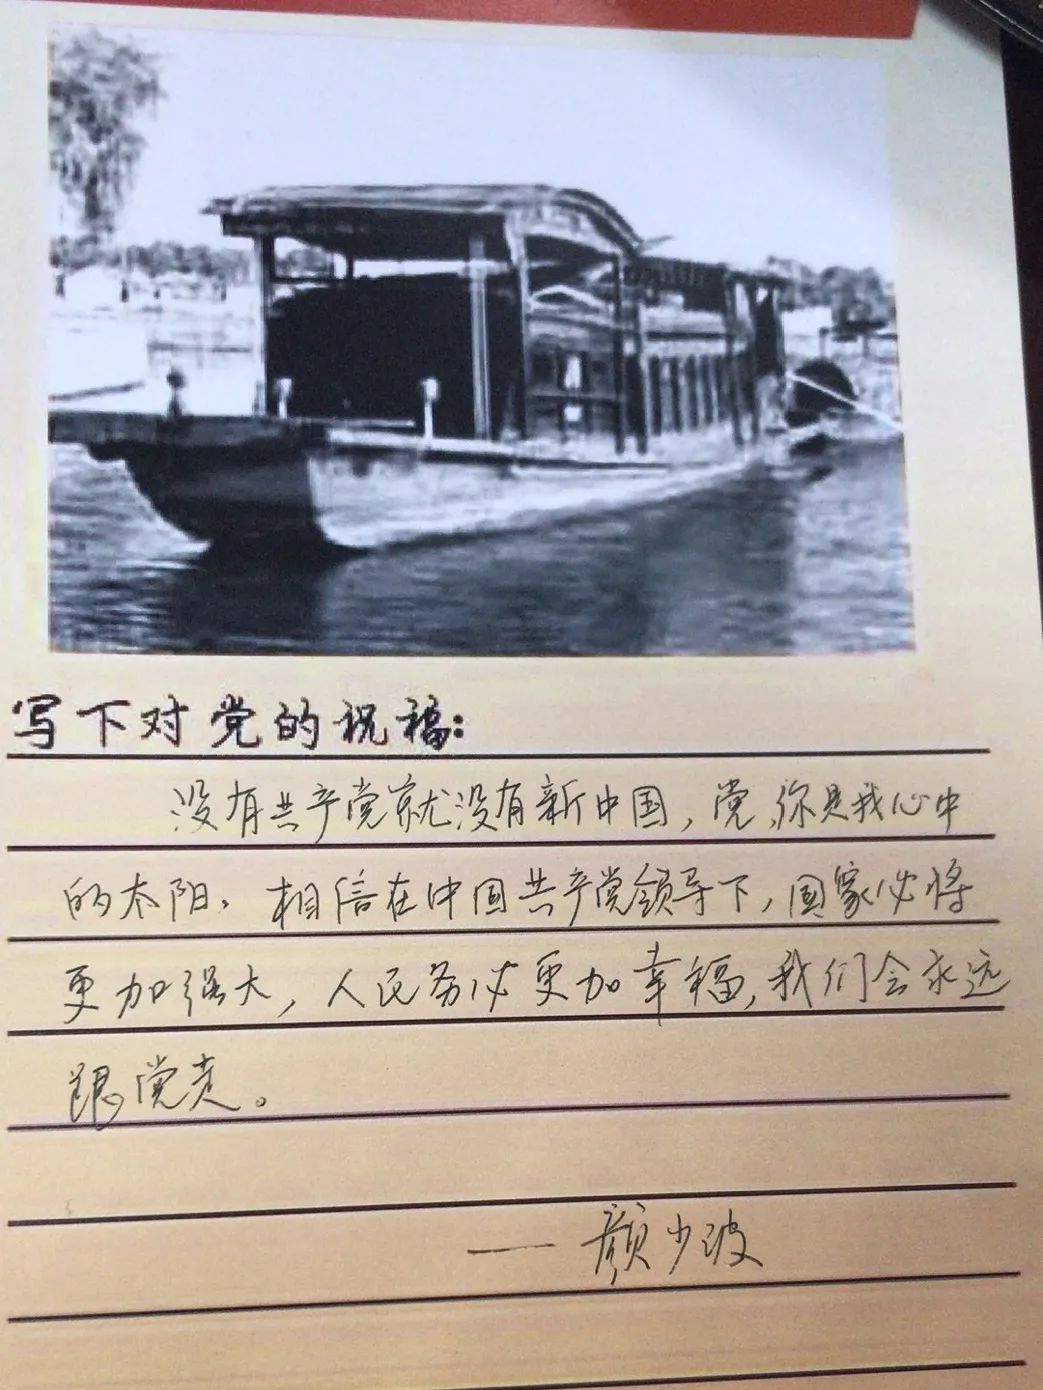 写下对党的祝福:
没有共产党就没有新中国,党,你是我心中
的太阳。相信在中国共产党领导下,国家必将
更加强大,人民务必更加幸福,我们会永远
跟党走。
——颜少波